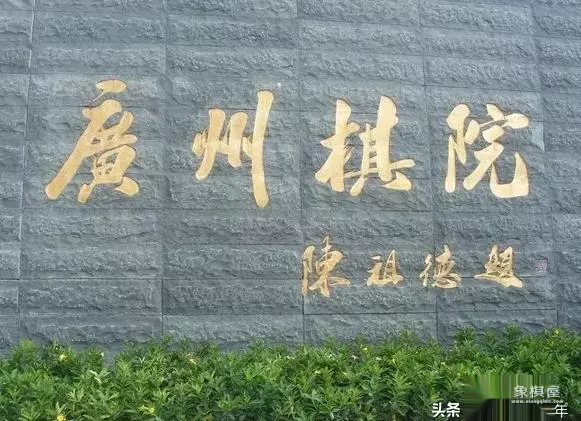 廣州棋院
陳祖德題
象棋屋
www.xiangqiwu.com
头条
年